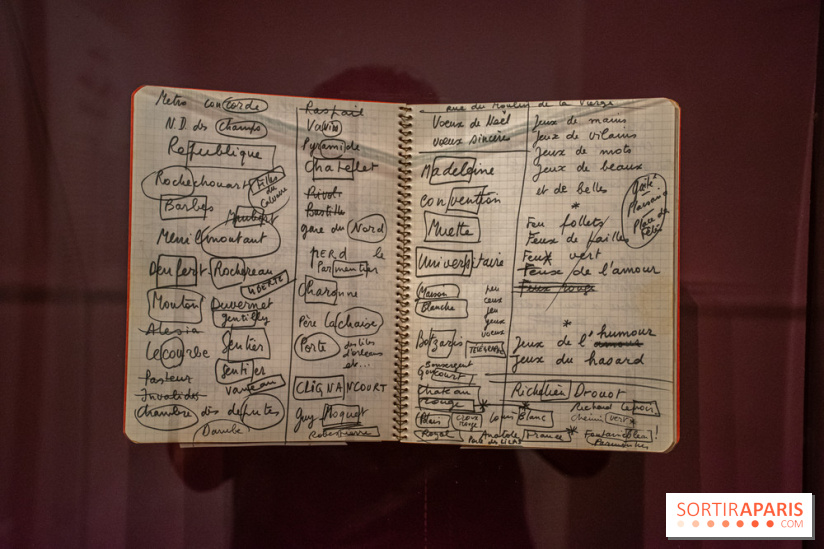 Metro concorde
N.D. des champs
Republique
Rochechouart
Filles
du
Calvaire
Barbès
Menilmontant
Denfert Rochereau
Mouton Duvernet
gentilly
Alesia
Lecourbe
Sentier
Pasteur
Invalides
Vaneau
Chambre des deputes
Raspail
Vavin
Pyramide
Chatelet
Rivoli
Bastille
gare du Nord
perd le
Parmentier
Charonne
Père Lachaise
Porte des lilas
d'orleans
etc...
CLIGNANCOURT
Guy Moquet
Robespierre
rue du Moulin de la Vierge
Voeux de Noël
voeux sincères
Madeleine
convention
Muette
Universitaire
Maison
Blanche
Botzaris
TELEGRAPHE
Chateau
rouge
Blanc
Croix
rouge
Louis Blanc
Royal
Anatole France
Porte des LILAS
Jeux de mains
Jeux de vilains
Jeux de mots
Jeux de beaux
et de belles
*
Feu follets
Feux de failles
Feux vert
Feux de l'amour
Feux rouge
Gaité
Plaisance
Place des
Fêtes
*
Jeux de l'humour
Jeux du hasard
Richelieu Drouot
Richard Lenoir
Chemin vert
Fontainebleau !
SORTIRAPARIS
.COM